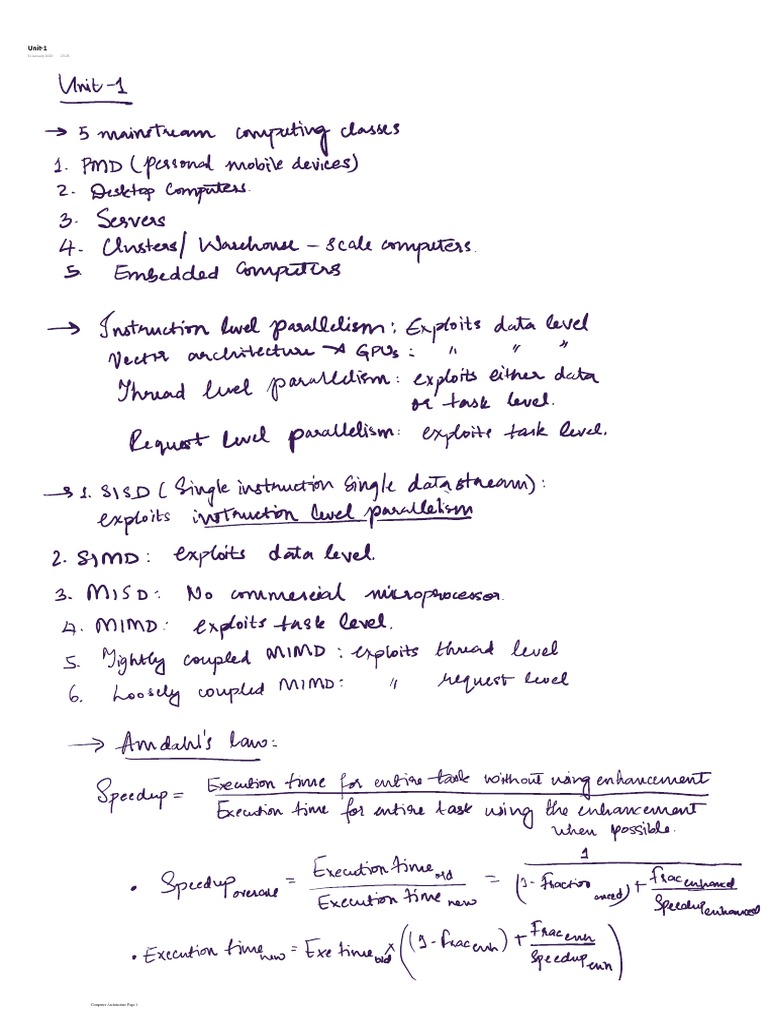 Unit-1
Unit-1
→ 5 mainstream computing classes
1. PMD (personal mobile devices)
2. Desktop Computers.
3. Servers
4. Clusters/ Warehouse – scale computers.
5. Embedded Computers
→ Instruction level parallelism: Exploits data level
Vector architecture → GPUs : " " "
Thread level parallelism: exploits either data
or task level.
Request level parallelism: exploits task level.
→ 1. SISD (Single instruction single data stream):
exploits instruction level parallelism
2. SIMD: exploits data level.
3. MISD: No commercial microprocessor.
4. MIMD: exploits task level.
5. Tightly coupled MIMD : exploits thread level
6. Loosely coupled MIMD: " request level
→ Amdahl's law:
Speedup = Execution time for entire task without using enhancement
Execution time for entire task using the enhancement
when possible.
• Speedup overall = Execution time old / Execution time new = 1 / ((1 - Fraction enhanced) + Frac enhanced / Speedup enhanced)
• Execution time new = Exe time old × ((1 - Frac enh) + Frac enh / Speedup enh)
Computer Architecture Page 1